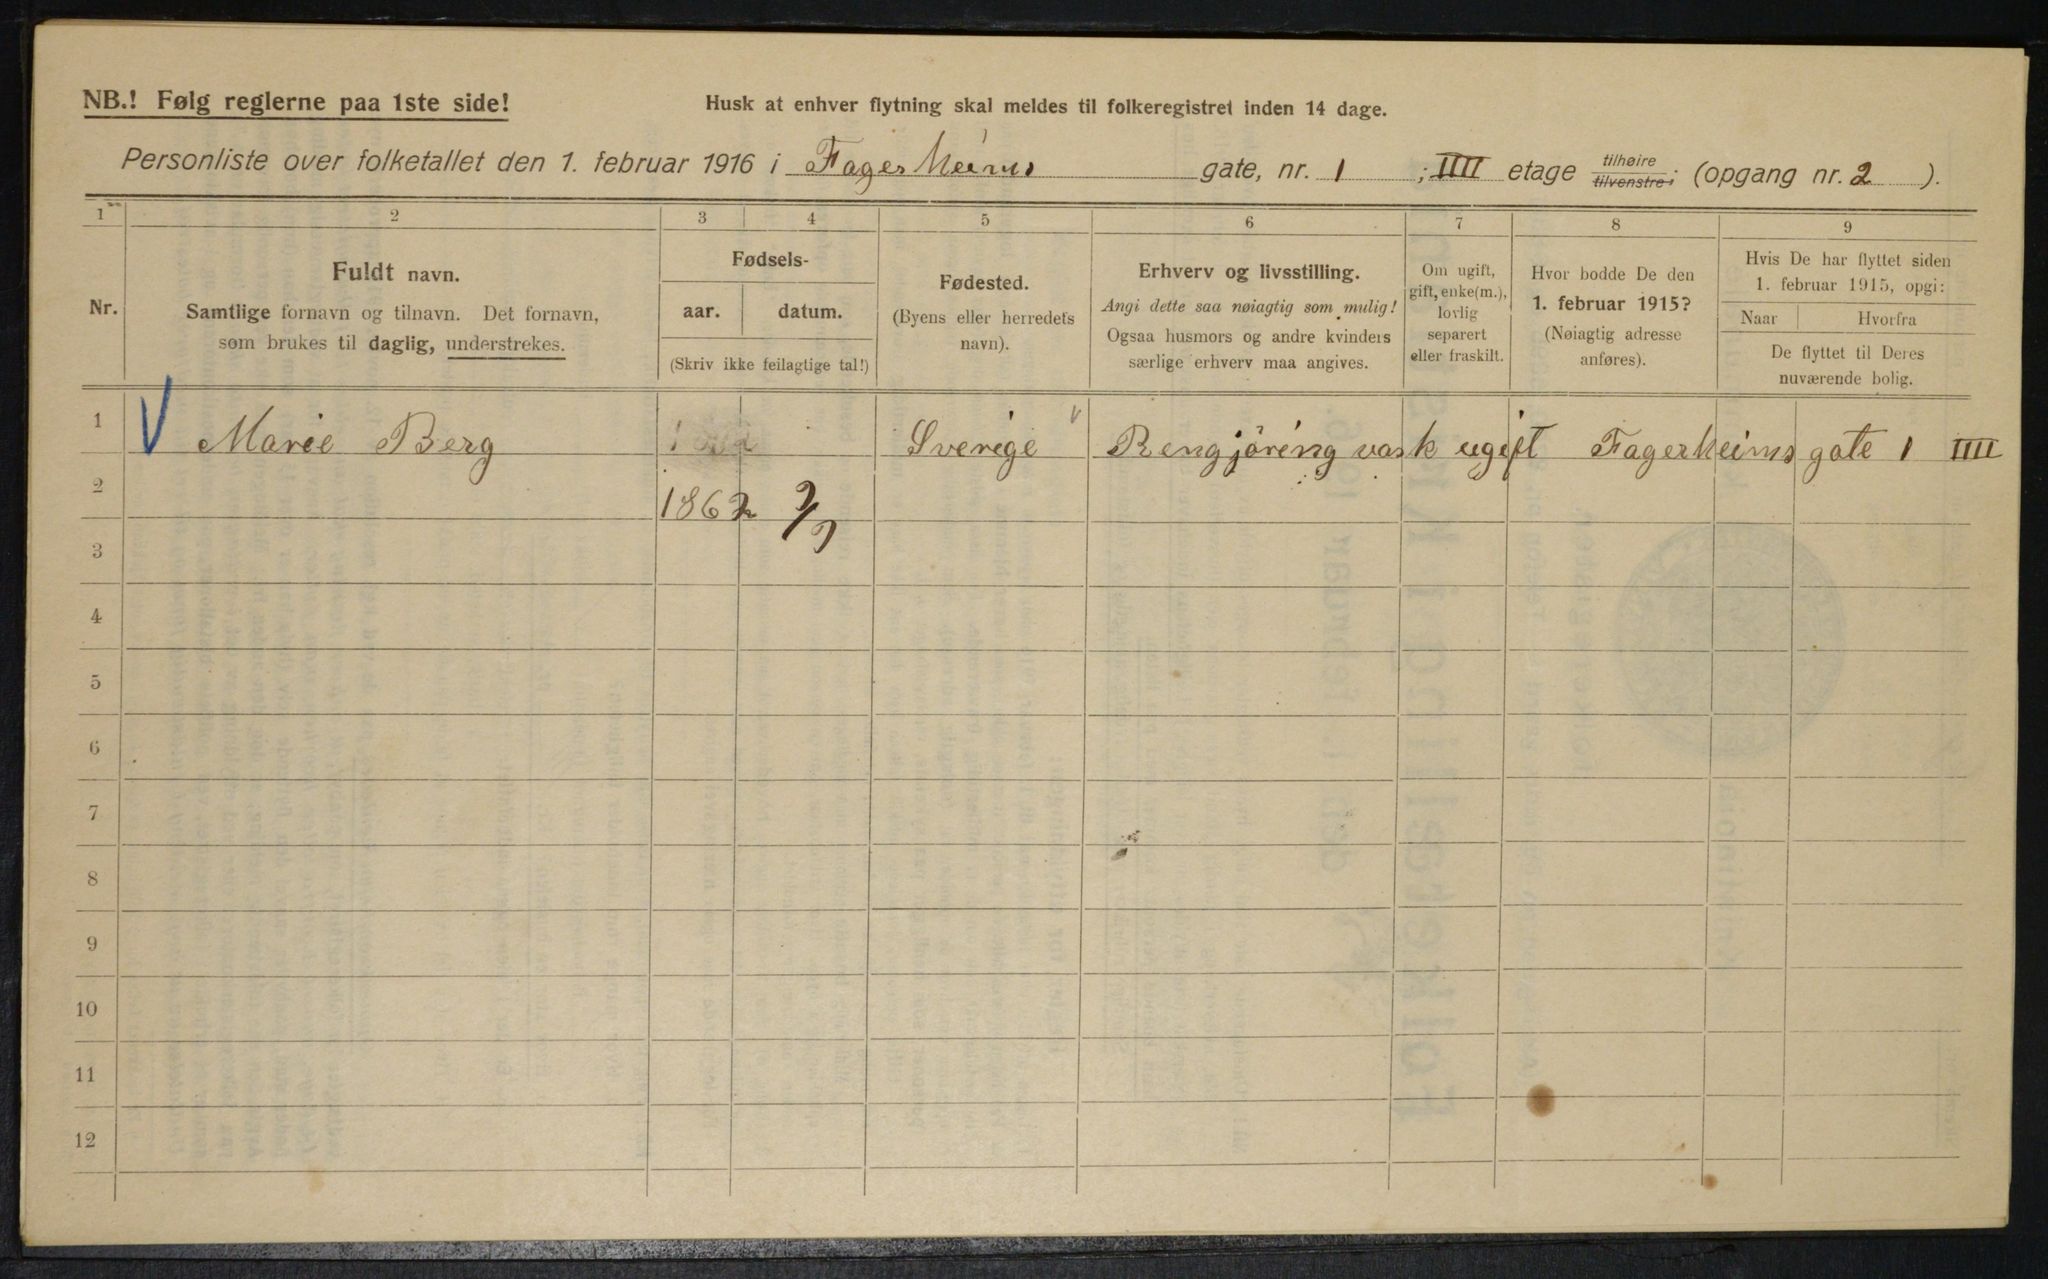 NB.! Følg reglerne paa 1ste side!
Husk at enhver flytning skal meldes til folkeregistret inden 14 dage.
Personliste over folketallet den 1. februar 1916 i Fagerheims gate, nr. 1 ; IIII etage tilhøire tilvenstre; (opgang nr. 2 ).
1 2 3 4 5 6 7 8 9
Nr.
Fuldt navn.
Samtlige fornavn og tilnavn. Det fornavn,
som brukes til daglig, understrekes.
Fødsels-
aar. datum.
(Skriv ikke feilagtige tal!)
Fødested.
(Byens eller herredets
navn).
Erhverv og livsstilling.
Angi dette saa nøiagtig som mulig!
Ogsaa husmors og andre kvinders
særlige erhverv maa angives.
Om ugift,
gift, enke(m.),
lovlig
separert
eller fraskilt.
Hvor bodde De den
1. februar 1915?
(Nøiagtig adresse
anføres).
Hvis De har flyttet siden
1. februar 1915, opgi:
Naar Hvorfra
De flyttet til Deres
nuværende bolig.
1 V Marie Berg Sverige Rengjöring vask ugift Fagerheims gate 1 IIII
2 1862
3
4
5
6
7
8
9
10
11
12